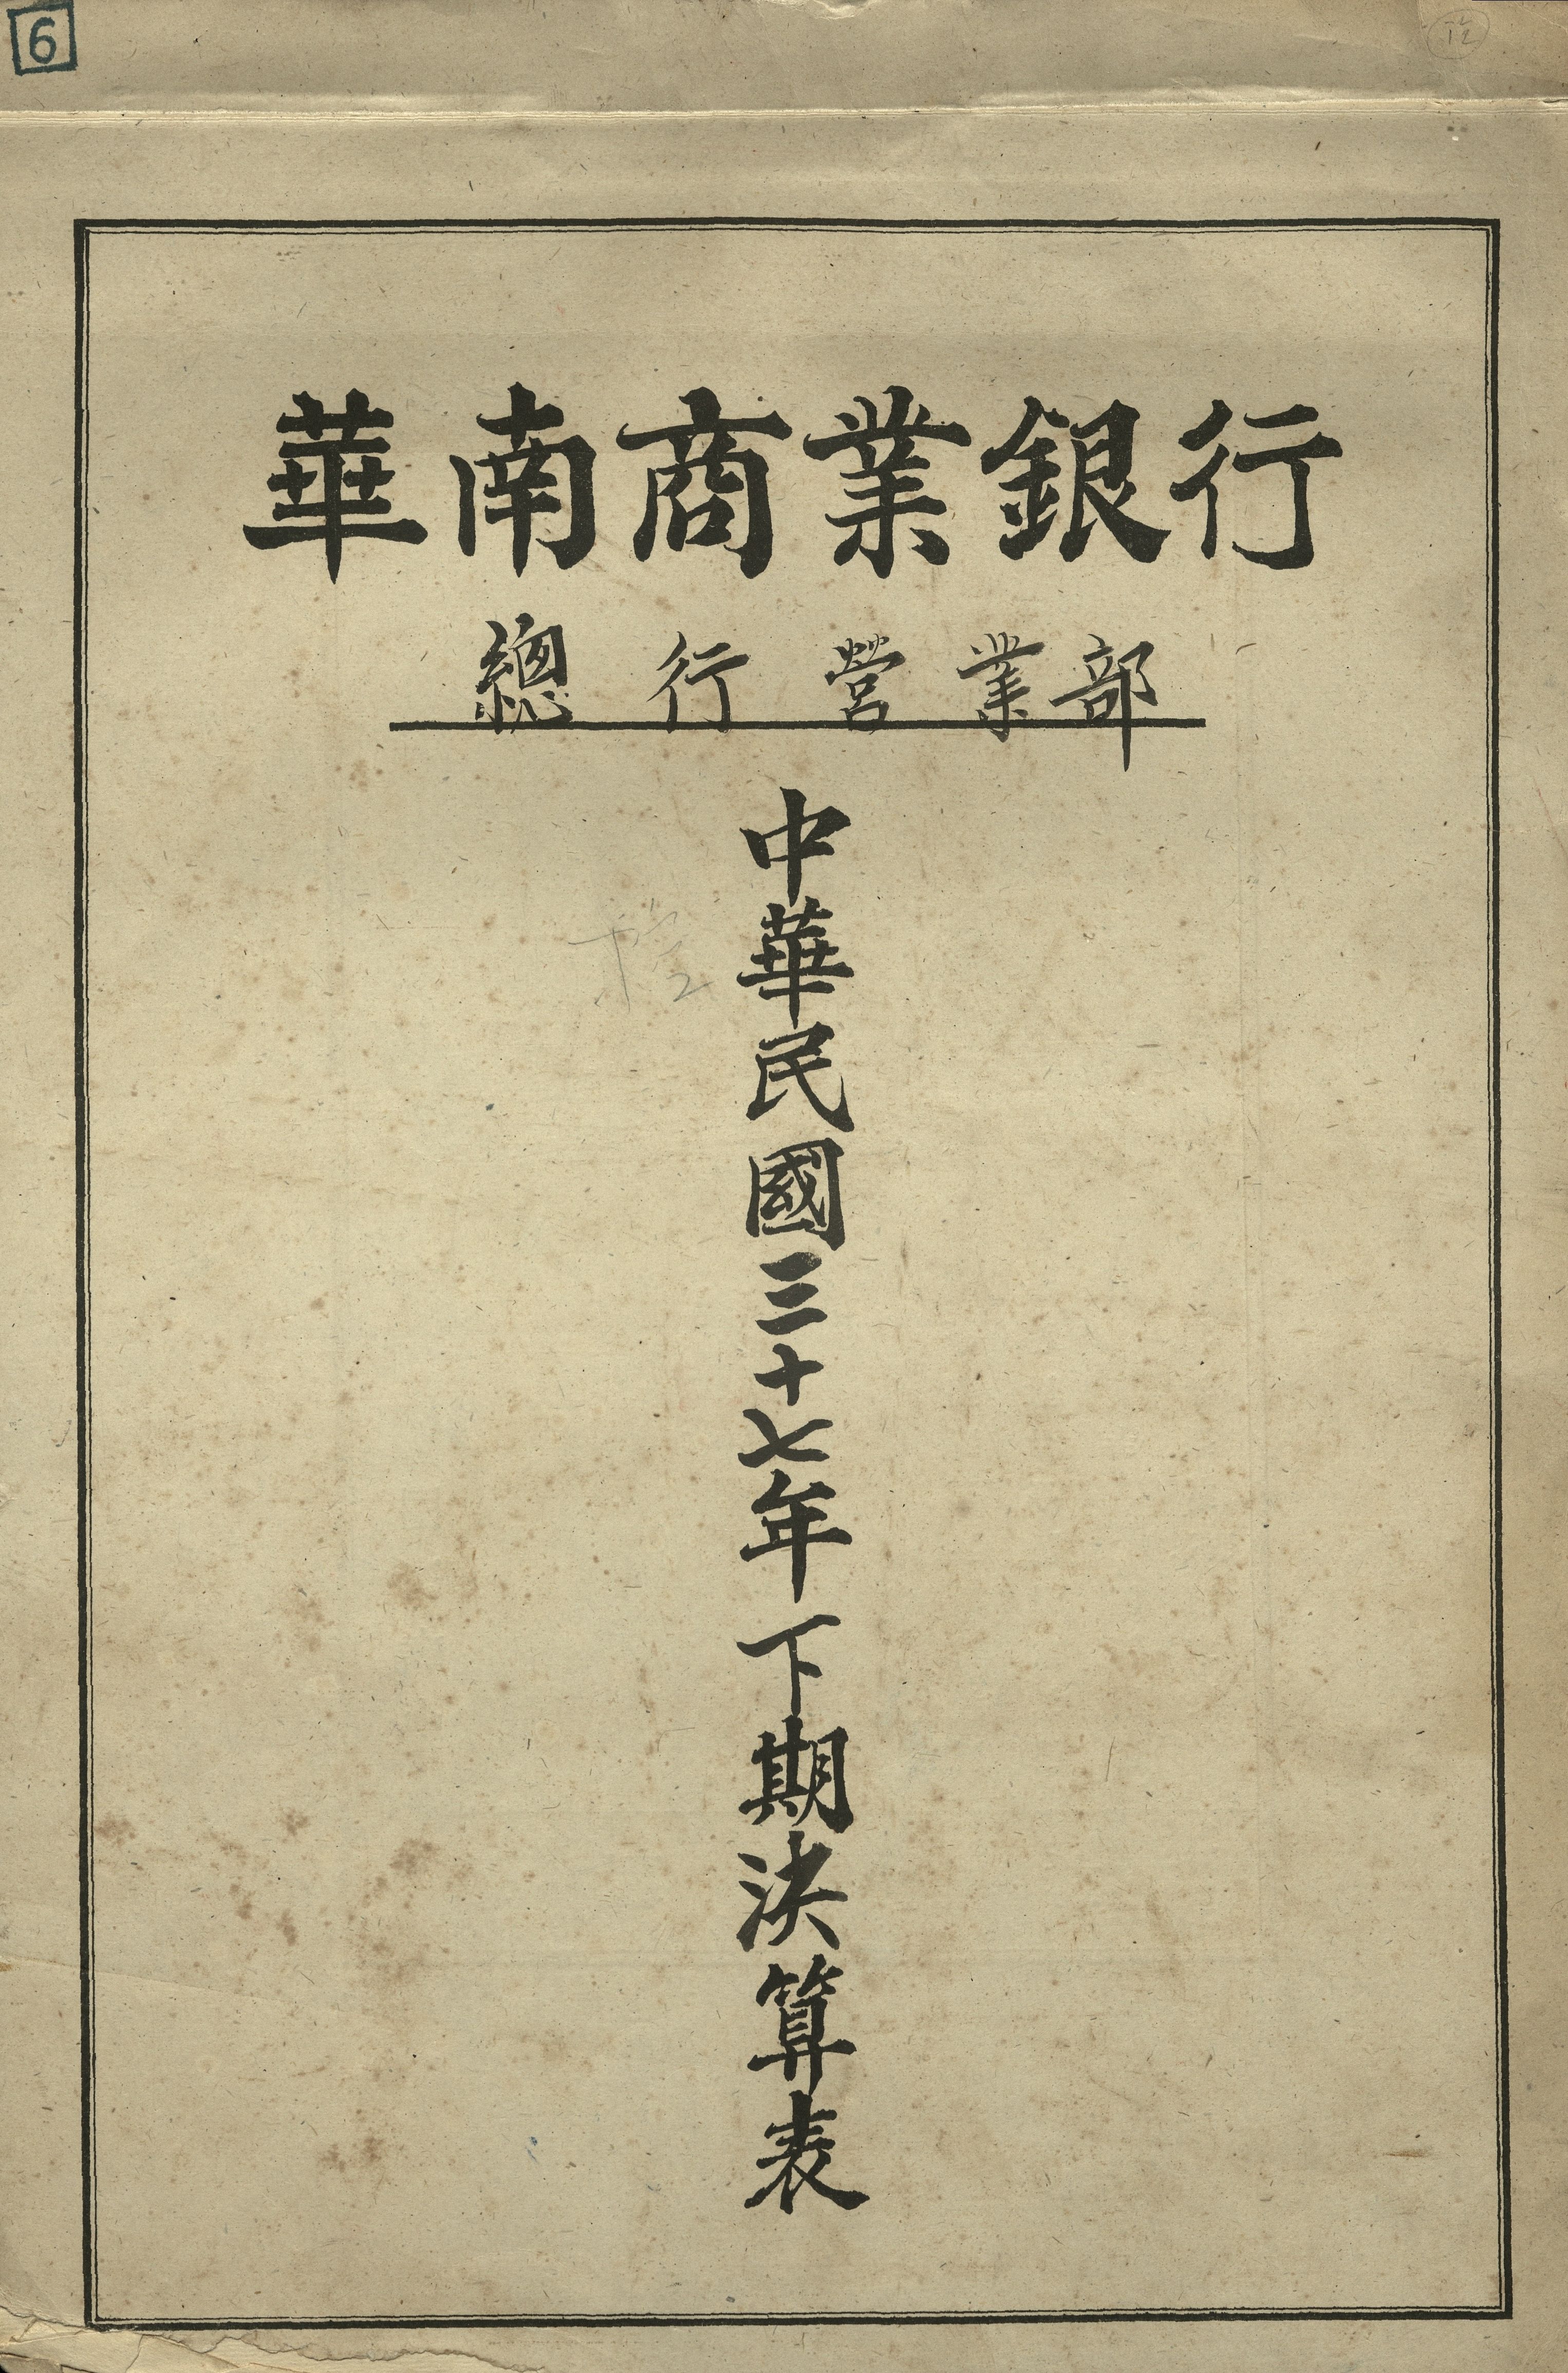 6
華南商業銀行
總行營業部
中華民國三十七年下期決算表